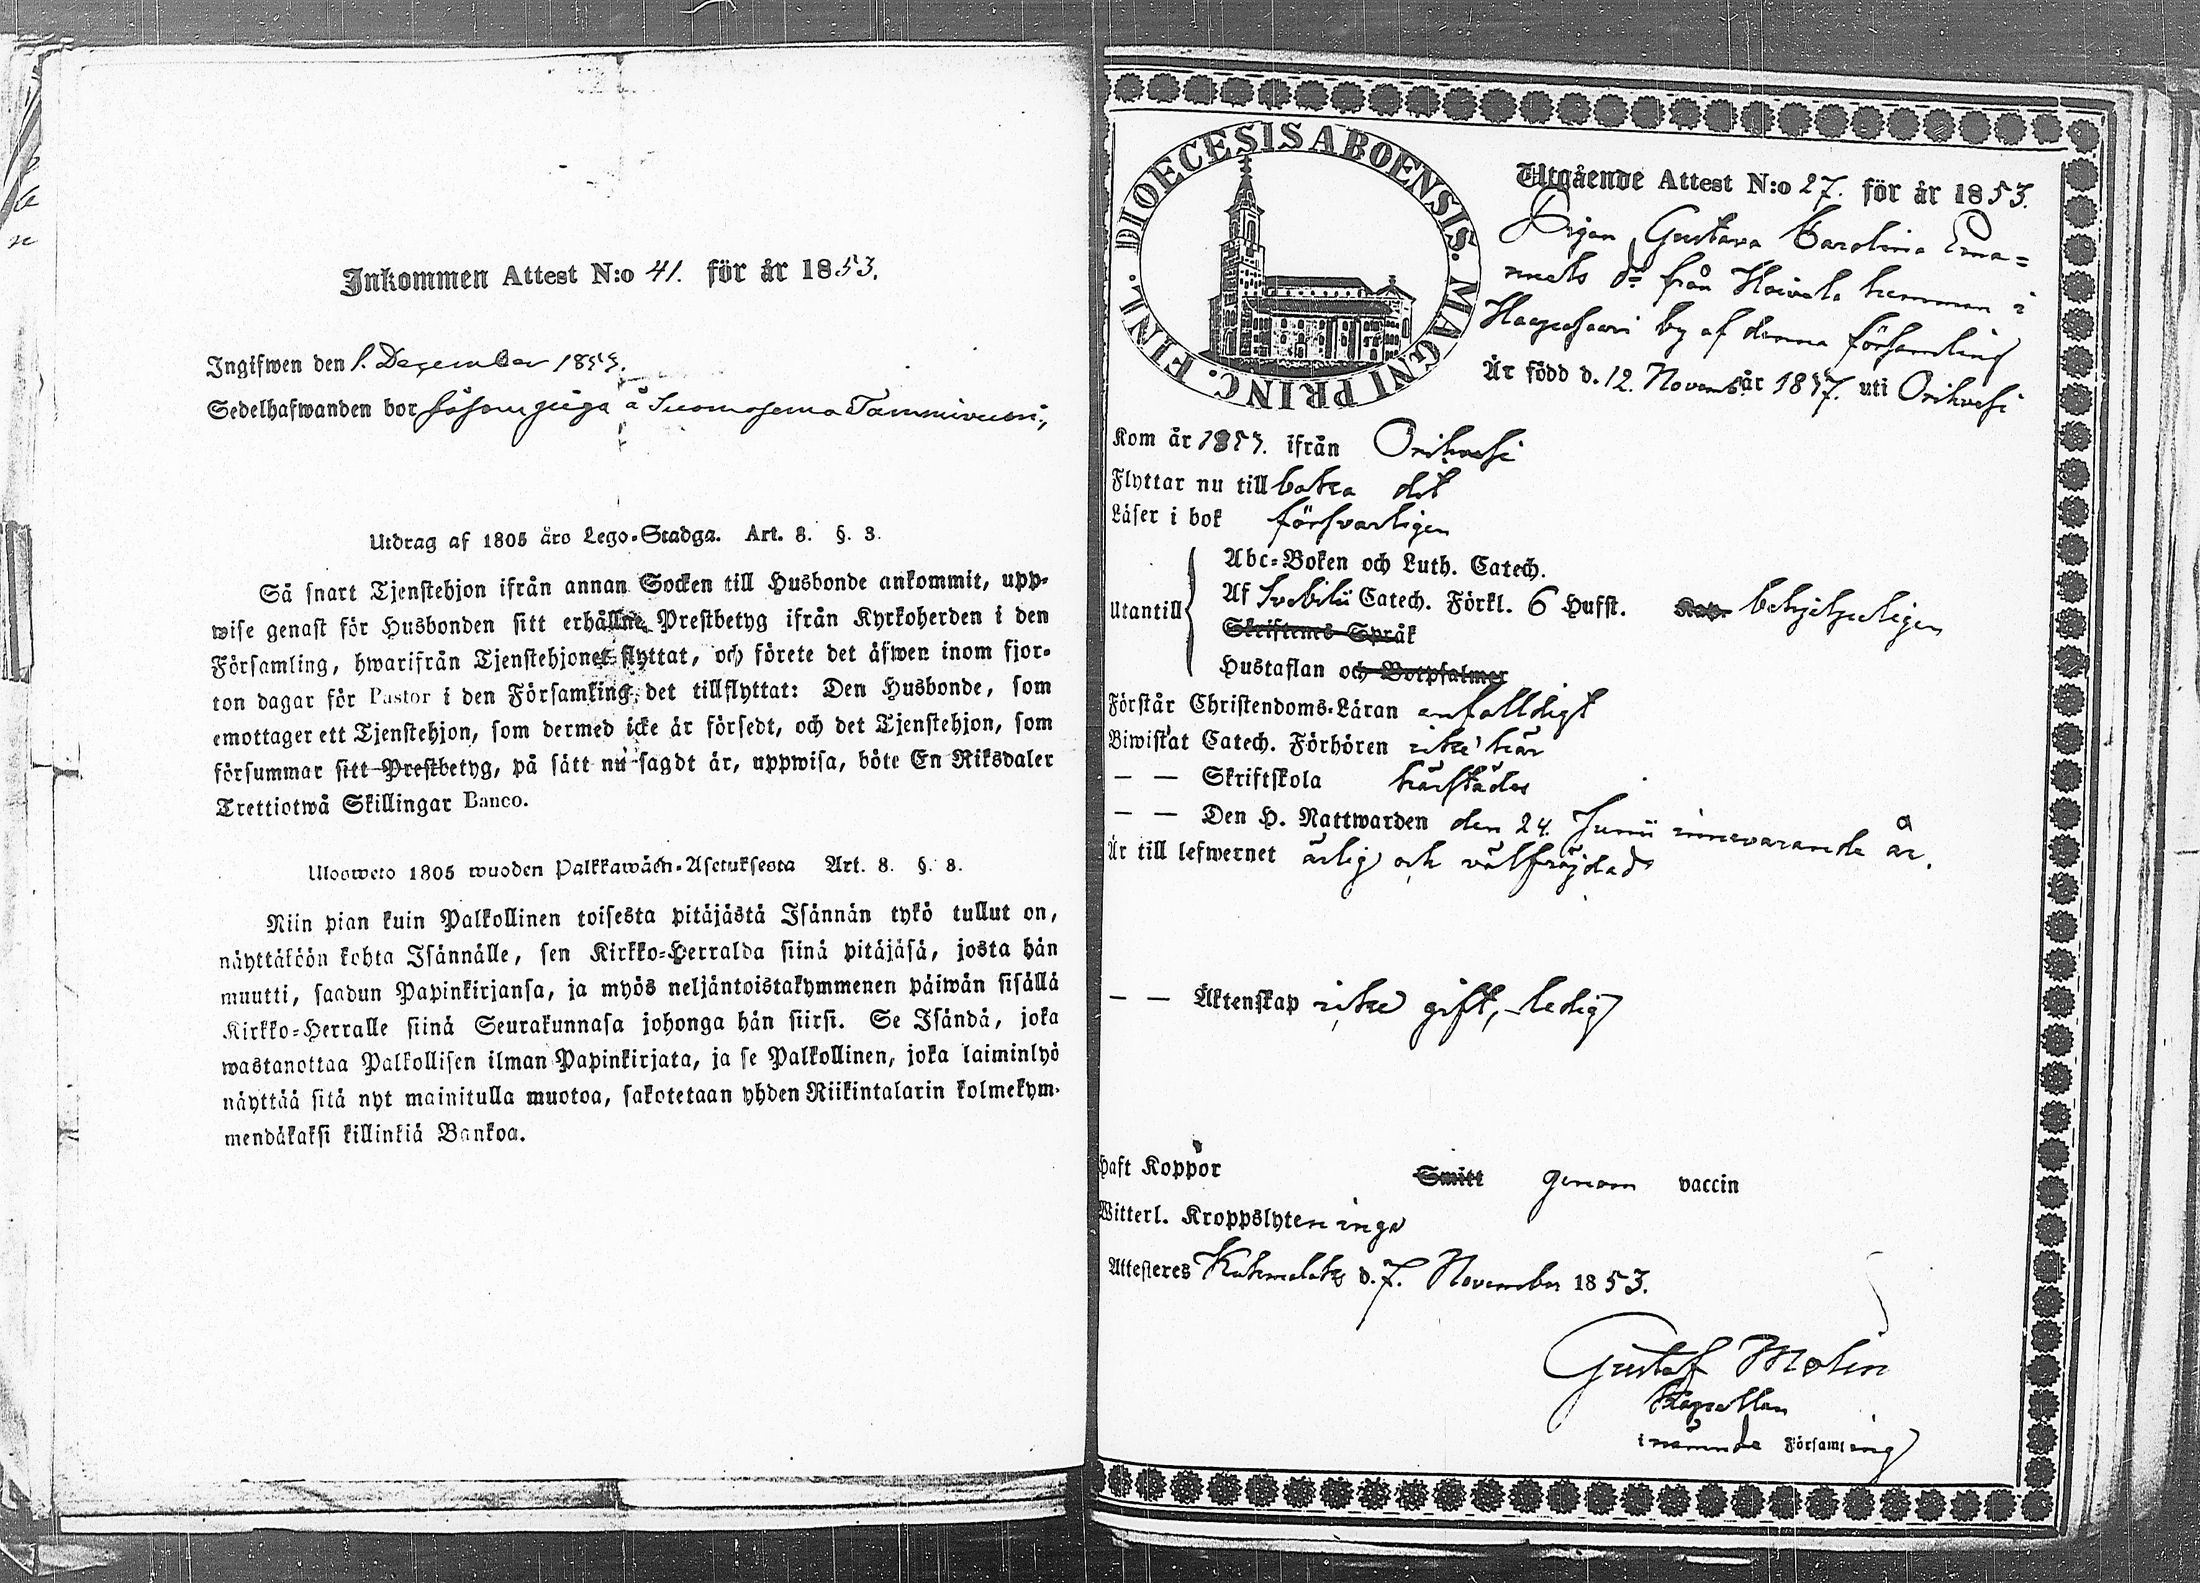 Inkommen Attest N:o 41. för år 1853.
Ingifwen den 1. December 1853.
Sedelhafwanden bor såsom piga å Suomasema Tammivuori,
Utdrag af 1805 års Lego-Stadga. Art. 8. §. 3.
Så snart Tjenstehjon ifrån annan Socken till Husbonde ankommit, upp-
wise genast för Husbonden sitt erhållne Prestbetyg ifrån Kyrkoherden i den
Församling, hwarifrån Tjenstehjonet flyttat, och förete det äfwen inom fjor-
ton dagar för Pastor i den Församling, det tillflyttat: Den Husbonde, som
emottager ett Tjenstehjon, som dermed icke är försedt, och det Tjenstehjon, som
försummar sitt Prestbetyg, på sätt nu sagdt är, uppwisa, böte En Riksdaler
Trettiotwå Skillingar Banco.
Ulosweto 1805 wuoden Palkkawäen-Asetuksesta Art. 8. §. 3.
Niin pian kuin Palkollinen toisesta pitäjästä Isännän tykö tullut on,
näyttäköön kohta Isännälle, sen Kirkko-Herralda siinä pitäjäsä, josta hän
muutti, saadun Papinkirjansa, ja myös neljäntoistakymmenen päiwän sisällä
Kirkko-Herralle siinä Seurakunnasa johonga hän siirsi. Se Isändä, joka
wastanottaa Palkollisen ilman Papinkirjata, ja se Palkollinen, joka laiminlyö
näyttää sitä nyt mainitulla muotoa, sakotetaan yhden Riikintalarin kolmekym-
mendäkaksi killinkiä Bankoa.
DIOECESIS ABOENSIS. MAGNI PRINC. FINL.
Utgående Attest N:o 27. för år 1853.
Pigan Gustava Carolina Ema=
nuels dr från Hoivala hemman i
Haapasaari by af denna församling
Är född d. 12. Novemb år 1837. uti Orihvesi
Kom år 1853. ifrån Orihvesi
Flyttar nu till baka dit
Läser i bok försvarligen
Utantill
Abc-Boken och Luth. Catech.
Af Svebilii Catech. Förkl. 6 Hufst. Kap. behjelpeligen
Skriftenes Språk
Hustaflan och Botpsalmer
Förstår Christendoms-Läran enfalldigt
Biwistat Catech. Förhören icke här
— — Skriftskola härstädes
— — Den H. Nattwarden den 24. Junii innevarande år.
Är till lefwernet ärlig och välfräjdad
— — Äktenskap icke gift, ledig
Haft Koppor Smitt genom vaccin
Witterl. Kroppslyten inga
Attesteres Kuhmalaks d. 7. November 1853.
Gustaf Molin
Kapellan
i nämnde Församling